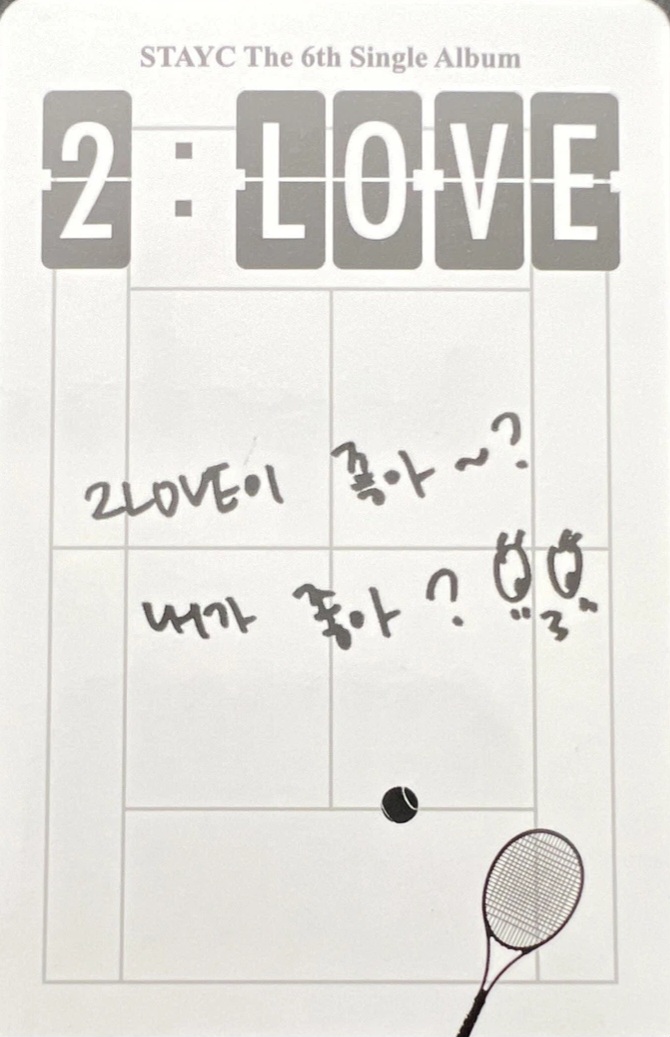 STAYC The 6th Single Album
2:LOVE
2LOVE이 좋아~?
내가 좋아?